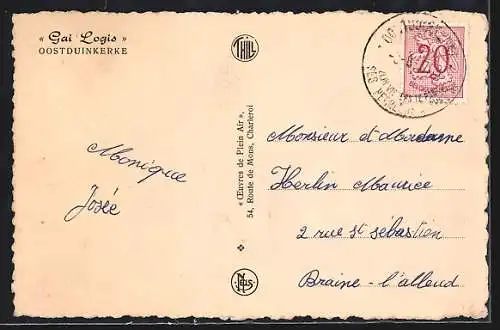 « Gai Logis »
OOSTDUINKERKE
THILL
20
Monique
Josée
« Œuvres de Plein Air »,
54, Route de Mons, Charleroi
Nels
Monsieur et Madame
Herlin Maurice
2 rue st sébastien
Braine-l'alleud